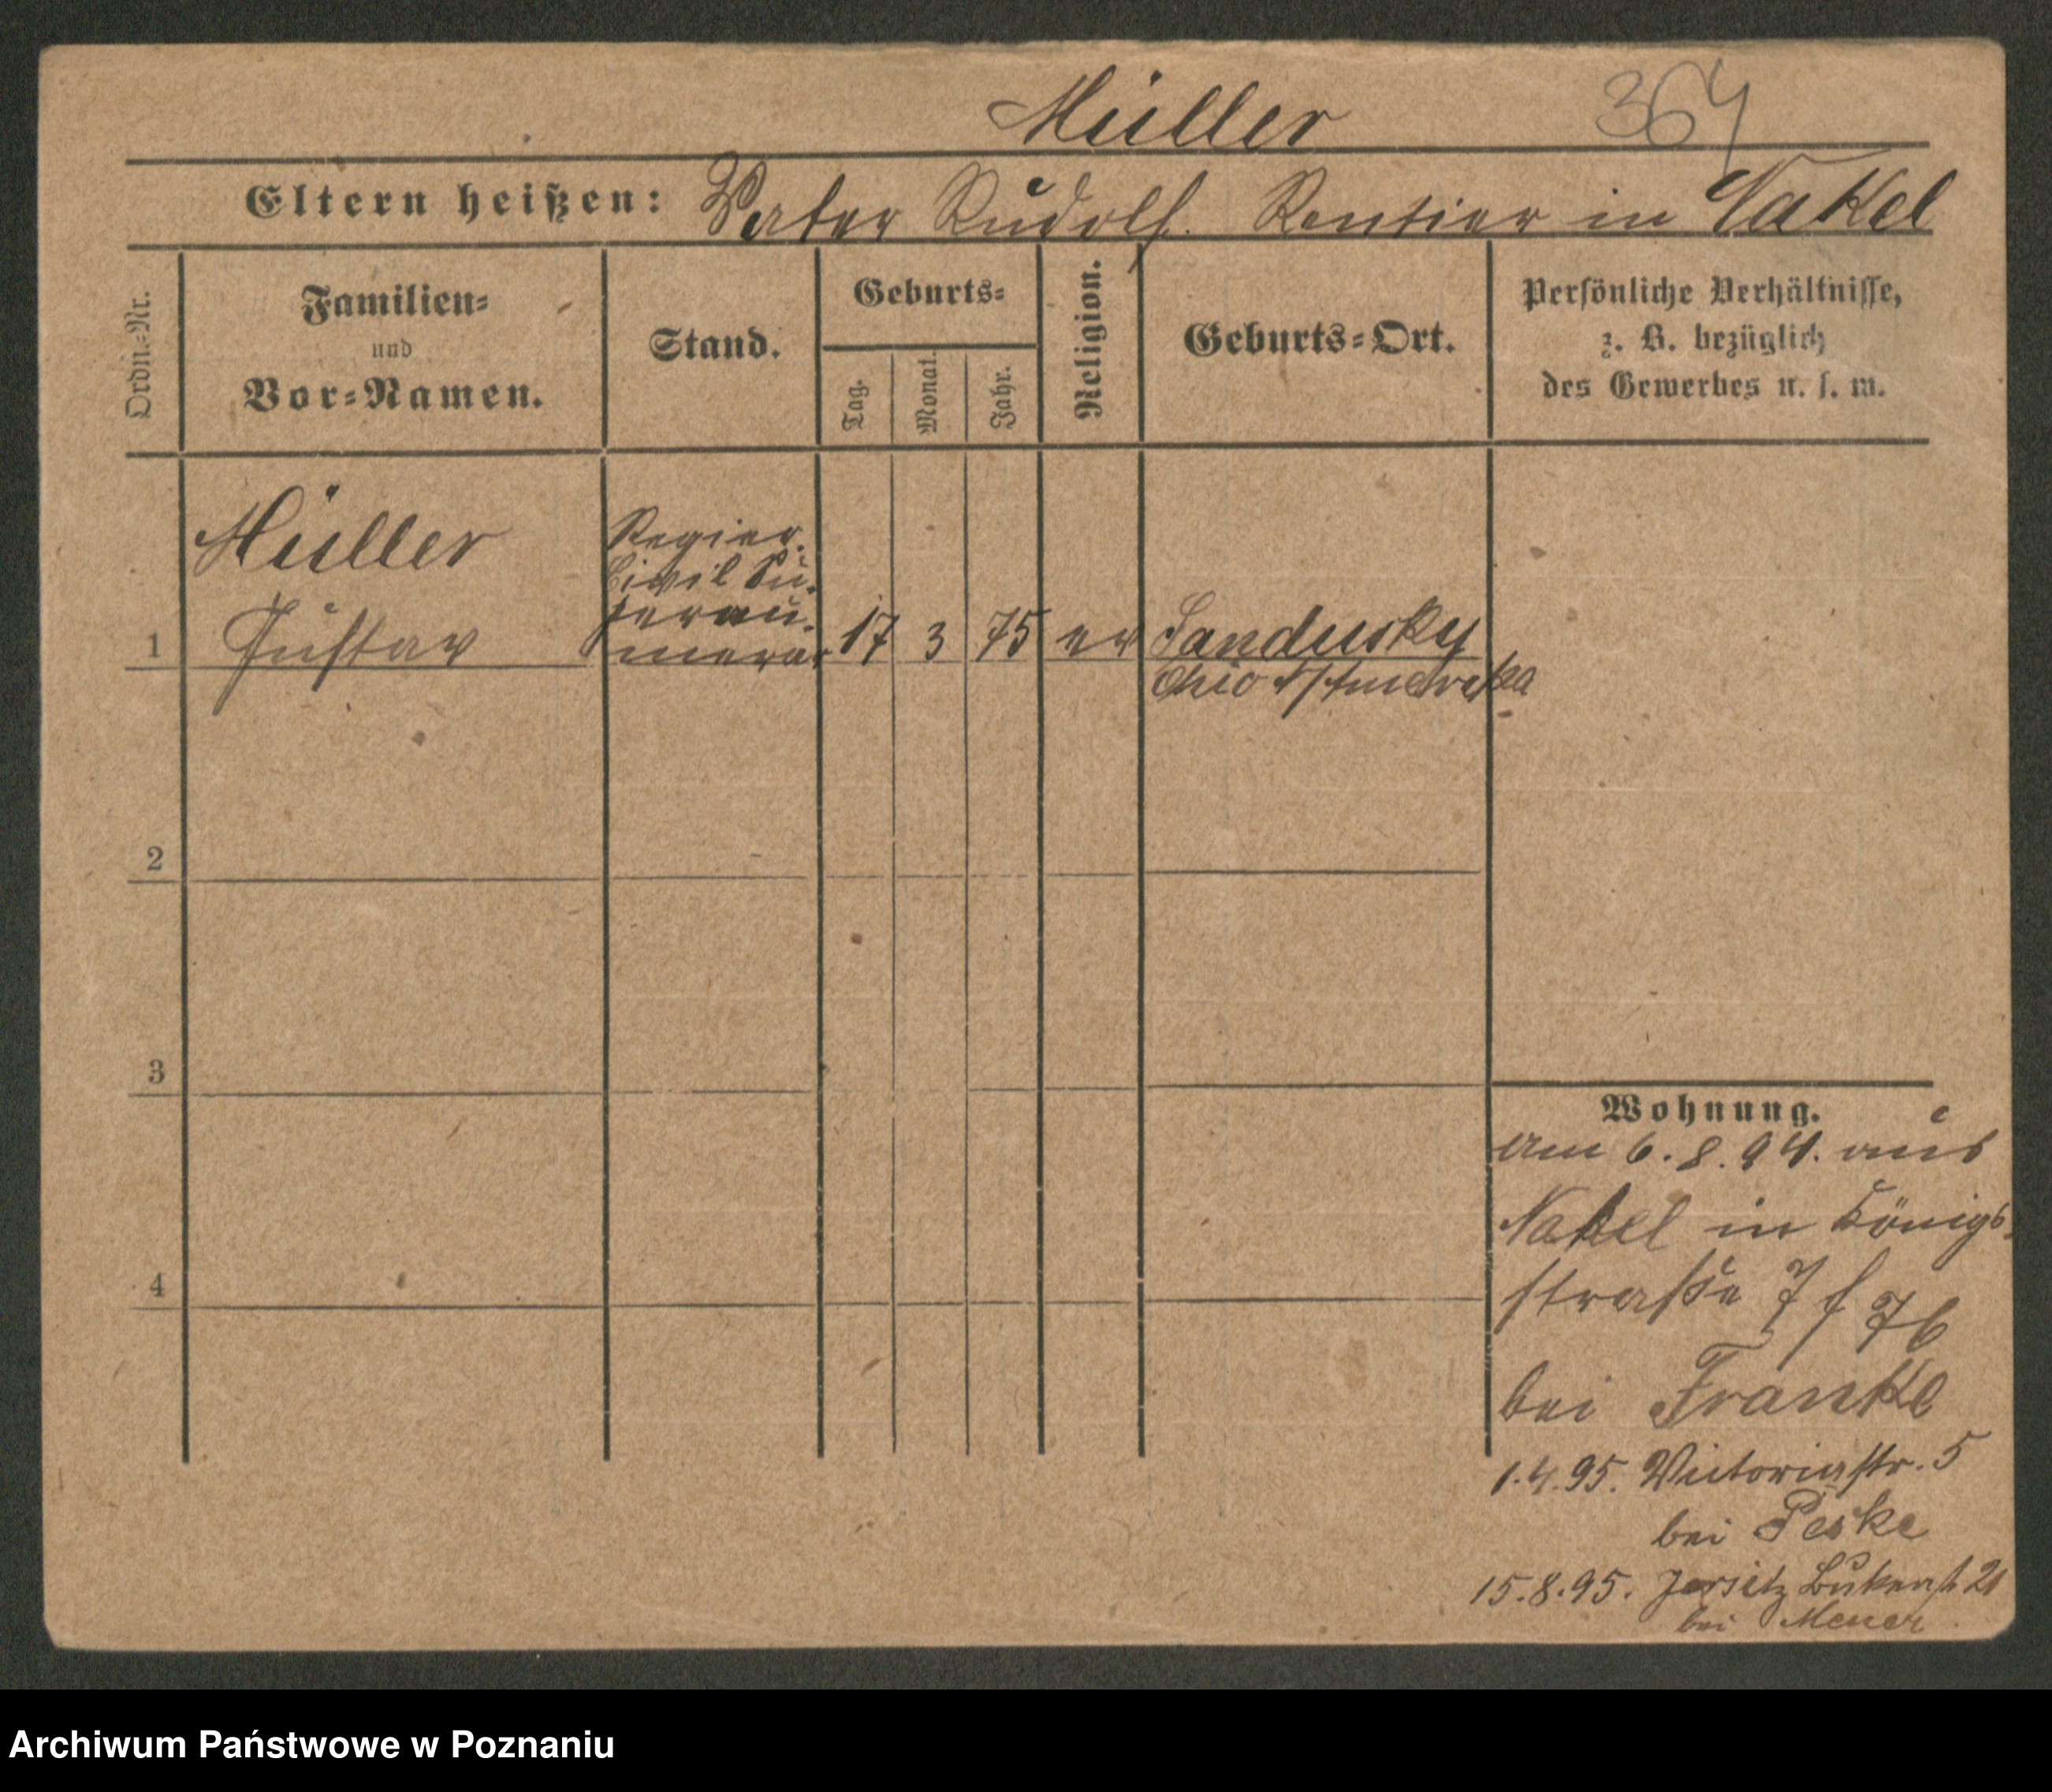 Müller 364
Eltern heißen: Vater Rudolf. Rentier in Nakel
Ordn.-Nr.
Familien-
und
Vor-Namen.
Stand.
Geburts-
Tag.
Monat.
Jahr.
Religion.
Geburts-Ort.
Persönliche Verhältnisse,
z. B. bezüglich
des Gewerbes u. s. w.
Müller
Gustav
Regier.
Civil Su-
pernu-
merar
1
17 3 75 ev
Sandusky
Ohio N/Amerika
2
3
4
Wohnung.
am 6.8.94. aus
Nakel in Königs-
straße 7 f 7b
bei Franke
1.4.95. Victoriastr. 5
bei Peske
15.8.95. Jersitz 21
bei
Archiwum Państwowe w Poznaniu